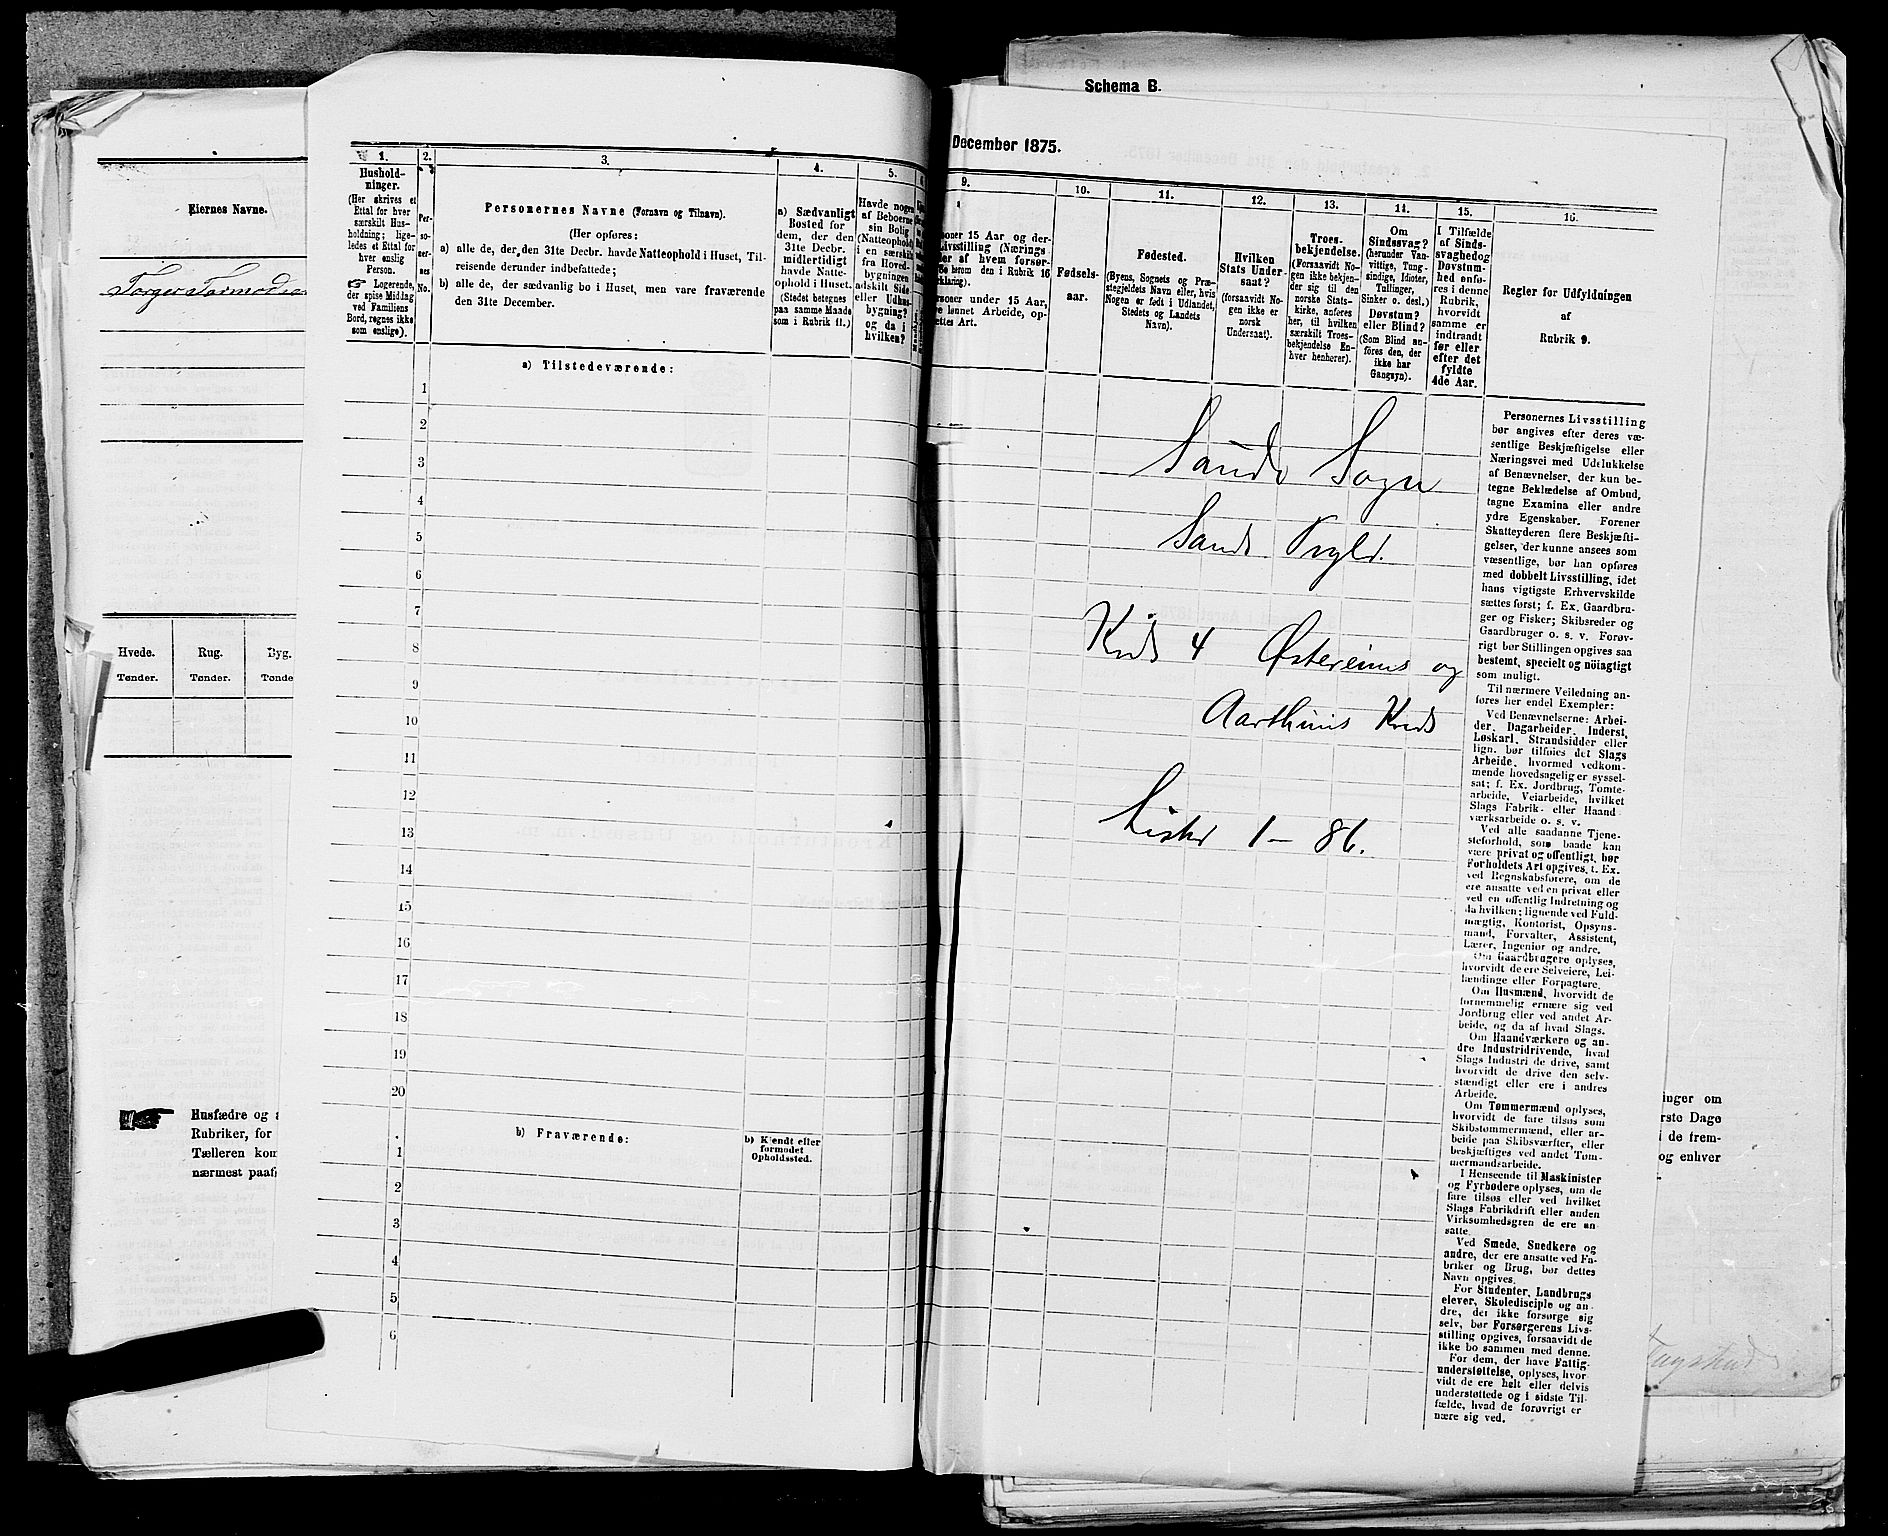 Schema B.
December 1875.
Eiernes Navne.
Torger Tormods
Hvede. Rug. Byg.
Tønder. Tønder. Tønde
Husfædre og
Rubriker, for
Tælleren kom
nærmest paaf
1. 2. 3. 4. 5.
Hushold-
ninger.
(Her skrives et
Ettal for hver
særskilt Hus-
holdning; lige-
ledes et Ettal for
hver enslig
Person.
Logerende,
der spise Middag
ved Familiens
Bord, regnes ikke
som enslige).
Per-
so-
ner-
nes
No.
Personernes Navne (Fornavn og Tilnavn).
(Her opføres:
a) alle de, der den 31te Decbr. havde Natteophold i Huset, Til-
reisende derunder indbefattede;
b) alle de, der sædvanlig bo i Huset, men vare fraværende
den 31te December.
a) Sædvanligt
Bosted for
dem, der den
31te Decbr.
midlertidigt
havde Natte-
ophold i Huset.
(Stedet betegnes
paa samme Maade
som i Rubrik 11.)
Havde nogen
af Beboerne
sin Bolig
(Natteophold)
i en særskilt
fra Hoved-
bygningen
adskilt Side-
eller Udhus-
bygning?
og da i
hvilken?
a) Tilstedeværende:
1
2
3
4
5
6
7
8
9
10
11
12
13
14
15
16
17
18
19
20
b) Fraværende:
b) Kjendt eller
formodet
Opholdssted.
1
2
3
4
5
6
9. 10. 11. 12. 13. 14. 15. 16.
oner 15 Aar og der-
Livsstilling (Nærings
ler af hvem forsør-
den i Rubrik 16
klaring).
rsoner under 15 Aar,
re lønnet Arbeide, op-
ettes Art.
Fødsels-
aar.
Fødested.
(Byens, Sognets og Præ-
stegjeldets Navn eller, hvis
Nogen er født i Udlandet,
Stedets og Landets
Navn).
Hvilken
Stats Under-
saat?
(forsaavidt No-
gen ikke er
norsk
Undersaat).
Troes-
bekjendelse.
(Forsaavidt No-
gen ikke bekjen-
der sig til den
norske Stats-
kirke, anføres
her, til hvilken
særskilt Troes-
bekjendelse En-
hver henhører).
Om
Sindssvag?
(herunder Van-
vittige, Tung-
sindige, Idioter,
Tullinger,
Sinker o. desl.)
Døvstum?
eller Blind?
(Som Blind an-
føres den, der
ikke har
Gangsyn).
I Tilfælde
af Sinds-
svaghed og
Døvstum-
hed anfø-
res i denne
Rubrik,
hvorvidt
samme er
indtraadt
før eller
efter det
fyldte
4de Aar.
Regler for Udfyldningen
af
Rubrik 9.
Sands Sogn
Sands Prgld.
Krds 4 Østereims og
Aarthuns Krds
Lister 1 – 86.
Personernes Livsstilling
bør angives efter deres væ-
sentlige Beskjæftigelse eller
Næringsvei med Udelukkelse
af Benævnelser, der kun be-
tegne Beklædelse af Ombud,
tagne Examina eller andre
ydre Egenskaber. Forener
Skatteyderen flere Beskjæfti-
gelser, der kunne ansees som
væsentlige, bør han opføres
med dobbelt Livsstilling, idet
hans vigtigste Erhvervskilde
sættes først; f. Ex. Gaardbru-
ger og Fisker; Skibsreder og
Gaardbruger o. s. v. Forøv-
rigt bør Stillingen opgives saa
bestemt, specielt og nöiagtigt
som muligt.
Til nærmere Veiledning an-
føres her endel Exempler:
Ved Benævnelserne: Arbei-
der, Dagarbeider, Inderst,
Løskarl, Strandsidder eller
lign. bør tilføies det Slags
Arbeide, hvormed vedkom-
mende hovedsagelig er syssel-
sat; f. Ex. Jordbrug, Tomte-
arbeide, Veiarbeide, hvilket
Slags Fabrik- eller Haand-
værksarbeide o. s. v.
Ved alle saadanne Tjene-
steforhold, som baade kan
være privat og offentligt, bør
Forholdets Art opgives, t. Ex.
ved Regnskabsførere, om de
ere ansatte ved en privat eller
ved en offentlig Indretning og
da hvilken; lignende ved Fuld-
mægtig, Kontorist, Opsyns-
mand, Forvalter, Assistent,
Lærer, Ingeniør og andre.
Om Gaardbrugere oplyses,
hvorvidt de ere Selveiere, Lei-
lændinge eller Forpagtere.
Om Husmænd, hvorvidt de
fornemmelig ernære sig ved
Jordbrug eller ved andet Ar-
beide, og da af hvad Slags.
Om Haandværkere og an-
dre Industridrivende, hvad
Slags Industri de drive, samt
hvorvidt de drive den selv-
stændigt eller ere i andres
Arbeide.
Om Tømmermænd oplyses,
hvorvidt de fare tilsøs som
Skibstømmermænd, eller ar-
beide paa Skibsværfter, eller
beskjæftiges ved andet Tøm-
mermandsarbeide.
I Henseende til Maskinister
og Fyrbødere oplyses, om de
fare tilsøs eller ved hvilket
Slags Fabrikdrift eller anden
Virksomhedsgren de ere an-
satte.
Ved Smede, Snedkere og
andre, der ere ansatte ved Fa-
briker og Brug, bør dettes
Navn opgives.
For Studenter, Landbrugs-
elever, Skoledisciple og an-
dre, der ikke forsørge sig
selv, bør Forsørgerens Livs-
stilling opgives, forsaavidt de
ikke bo sammen med denne.
For dem, der have Fattig-
understøttelse, oplyses, hvor-
vidt de ere helt eller delvis
understøttede og i sidste Til-
fælde, hvad de forøvrigt er
nære sig ved.
inger om
rste Dage
i de frem-
og enhver